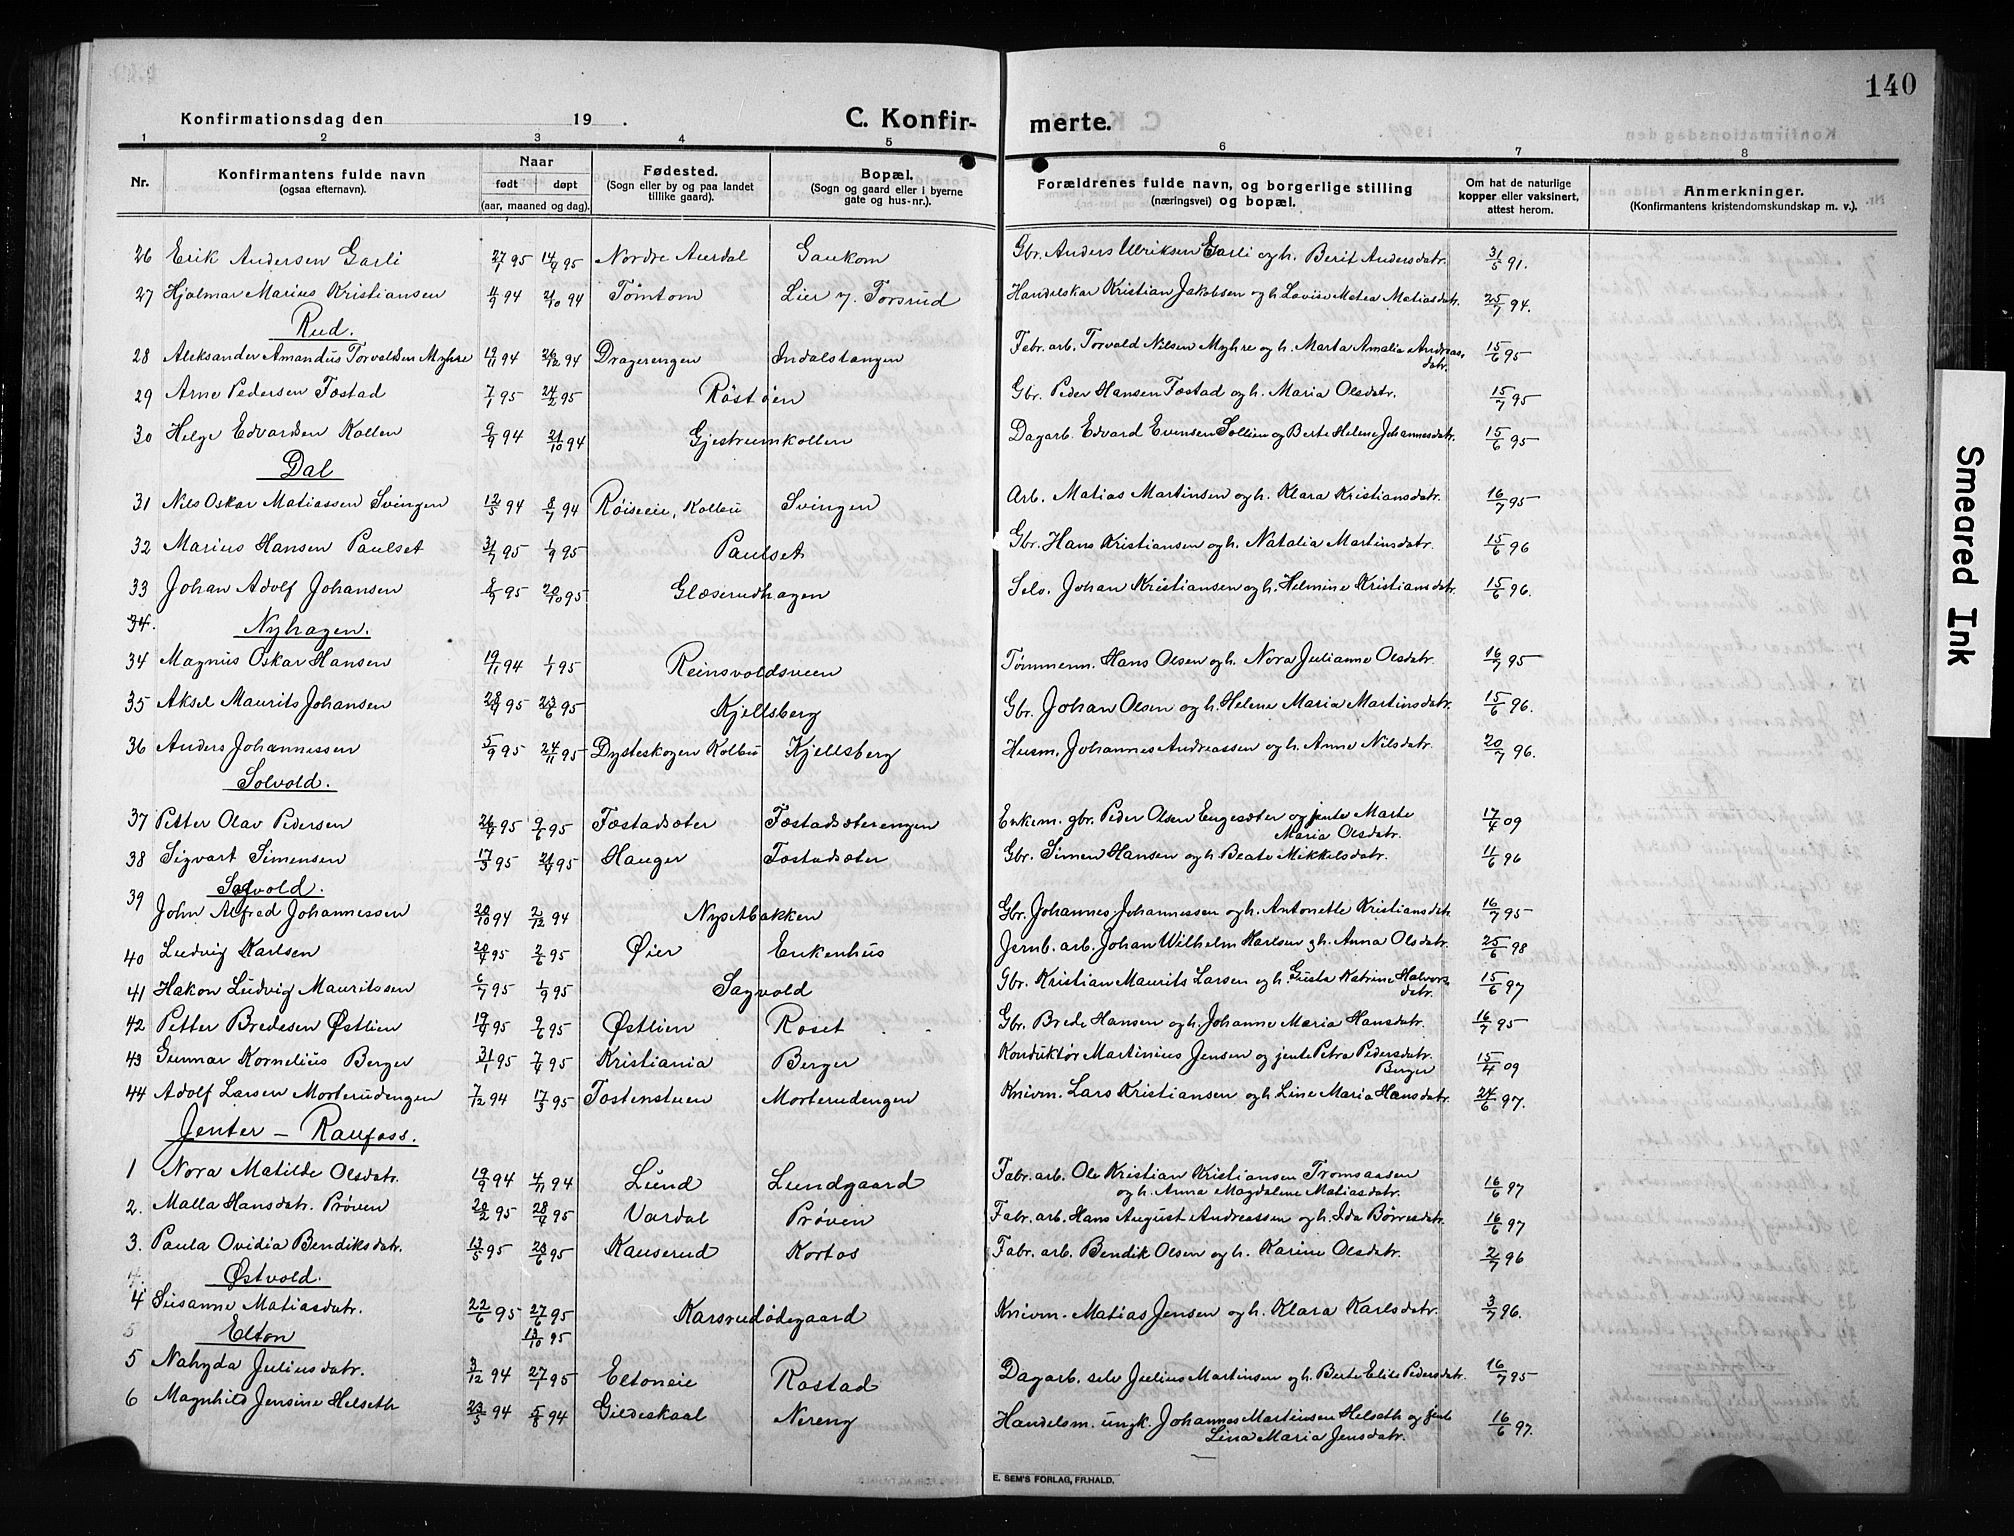 140
Konfirmationsdag den 19 .
C. Konfir- merte.
1 2 3 4 5 6 7 8
Nr. Konfirmantens fulde navn (ogsaa efternavn). Naar født døpt (aar, maaned og dag). Fødested. (Sogn eller by og paa landet tillike gaard). Bopæl. (Sogn og gaard eller i byerne gate og hus-nr.). Forældrenes fulde navn, og borgerlige stilling (næringsvei) og bopæl. Om hat de naturlige kopper eller vaksinert, attest herom. Anmerkninger. (Konfirmantens kristendomskundskap m. v.).
26 Erik Andersen Garli 27/1 95 14/4 95 Nordre Aurdal Gaukom Gbr. Anders Ulriksen Garli og h. Berit Andersdatr. 31/5 91.
27 Hjalmar Marius Kristiansen 11/9 94 21/10 94 Tømtom Lier v. Forsrud Handelskar Kristian Jakobsen og h. Lovise Matea Matiasdatr. 25/7 94.
Rud.
28 Aleksander Amandus Torvaldsen Myhre 19/11 94 26/12 94 Dragerengen Indalstangen Fabr. arb. Torvald Nilsen Myhre og h. Marta Amalia Andreas- 15/6 95
datr.
29 Arne Pedersen Fostad 7/1 95 24/2 95 Røstøen Gbr. Peder Hansen Fostad og h. Maria Olsdatr. 15/7 95
30 Helge Edvardsen Kollen 9/9 94 21/10 94 Gjestrumkollen Dagarb. Edvard Evensen Sollien og Berte Helene Johannesdatr. 15/6 95
Dal
31 Nils Oskar Matiassen Svingen 12/5 94 8/7 94 Røiseeie, Kolbu Svingen Arb. Matias Martinsen og h. Klara Kristiansdatr. 16/7 95
32 Marius Hansen Paulset 31/7 95 1/9 95 Paulset Gbr. Hans Kristiansen og h. Natalia Martinsdatr. 15/6 96
33 Johan Adolf Johansen 8/9 95 20/10 95 Glæserudhagen Selv. Johan Kristiansen og h. Helmine Kristiansdatr. 15/6 96.
34. Nyhagen.
34 Magnus Oskar Hansen 19/11 94 1/1 95 Reinsvoldsveen Tømmerm. Hans Olsen og h. Nora Julianne Olsdatr. 16/7 95
35 Aksel Maurits Johansen 28/4 95 23/6 95 Kjellsberg Gbr. Johan Olsen og h. Helene Maria Martinsdatr. 15/6 96.
36 Anders Johannessen 5/9 95 24/11 95 Dysteskogen Kolbu Kjellsberg Husm. Johannes Andreassen og h. Anne Nilsdatr. 20/7 96.
Solvold.
37 Petter Olav Pedersen 26/4 95 9/6 95 Fostadsæter Fostadsæterengen Enkem. gbr. Peder Olsen Engesæter og jente Marte 17/4 09
Maria Olsdatr.
38 Sigvart Simensen 17/3 95 21/4 95 Hauger Fostadsæter Gbr. Simen Hansen og h. Beate Mikkelsdatr. 11/6 96
39 Solvold.
John Alfred Johannessen 20/10 94 2/12 94 Nysetbakken Gbr. Johannes Johannessen og h. Antonette Kristiansdatr 16/7 95
40 Ludvig Karlsen 20/4 95 2/6 95 Øier Enkenhus Jernb. arb. Johan Wilhelm Karlsen og h. Anna Olsdatr. 25/6 98
41 Hakon Ludvig Mauritssen 6/7 95 1/9 95 Sagvold Gbr. Kristian Maurits Larsen og h. Gusta Katrine Halvors- 15/6 97
datr.
42 Petter Bredesen Østlien 19/4 95 9/6 95 Østlien Roset Gbr. Brede Hansen og h. Johanne Maria Hansdatr. 16/7 95
43 Gunnar Kornelius Berger 31/1 95 7/4 95 Kristiania Berger Konduktør Martinius Jensen og jente Petra Pedersdatr. 15/4 09
Berger
44 Adolf Larsen Morterudengen 7/12 94 17/3 95 Fostenstuen Morterudengen Knivm. Lars Kristiansen og h. Line Maria Hansdatr. 24/6 97.
Jenter – Raufoss.
1 Nora Matilde Olsdatr. 19/9 94 4/11 94 Lund Lundgaard Fabr. arb. Ole Kristian Kristiansen Tromsaasen 16/6 97
og h. Anna Magdalene Matiasdatr.
2. Malla Hansdatr. Prøven 20/2 95 28/4 95 Vardal Prøven Fabr. arb. Hans August Andreassen og h. Ida Børresdatr. 16/6 97
3. Paula Ovidia Bendiksdatr. 13/5 95 23/6 95 Kauserud Kortos Fabr. arb. Bendik Olsen og h. Karine Olsdatr. 2/7 96
4. Østvold.
4 Susanne Matiasdatr. 22/6 95 27/6 95 Karsrudødegaard Knivm. Matias Jensen og h. Klara Karlsdatr. 3/7 96.
5 Elton 13/10 95
5 Nahyda Juliusdatr. 3/12 94 27/1 95 Eltoneie Rostad Dagarb. selv Julius Martinsen og h. Berte Elise Pedersdatr. 16/7 95
6 Magnhild Jensine Helseth 23/5 94 5/8 94 Gildeskaal Nereng Handelsm. ungk. Johannes Martinsen Helseth og jente 16/6 97.
Lina Maria Jensdatr.
E. SEM'S FORLAG, FR.HALD.
Smeared Ink